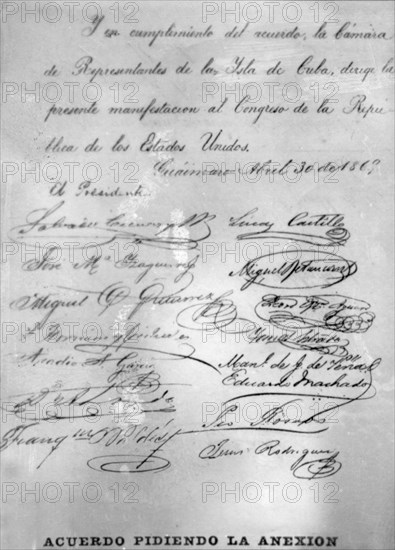 Y en cumplimiento del acuerdo, la Cámara
de Representantes de la Isla de Cuba, dirige la
presente manifestacion al Congreso de la Repú
blica de los Estados Unidos.
Guáimaro Abril 30 de 1869
El Presidente
Salvador Cisneros y B.
Lucas Castillo
José Ma. Izaguirre
Miguel Betancourt
Miguel G. Gutierrez
Arcadio S. García
Tomás Estrada
Manl. de J. de Peña
Eduardo Machado
Pio Rosado
Jesus Rodriguez
ACUERDO PIDIENDO LA ANEXION